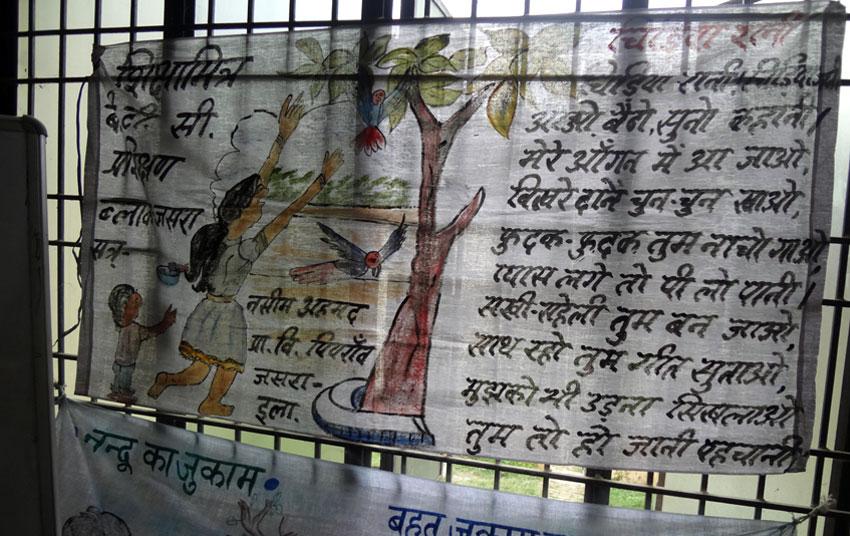 शिक्षामित्र
बे.टी. सी.
प्रशिक्षण
ब्लाक जसरा
सत्र-
नसीम अहमद
प्रा. वि. पिपराँव
जसरा-
इला.
चिड़िया रानी
चिड़िया रानी,
आओ बैठो, सुनो कहानी।
मेरे आँगन में आ जाओ,
बिखरे दाने चुन-चुन खाओ,
फुदक-फुदक तुम नाचो गाओ,
प्यास लगे तो पी लो पानी।
सखी-सहेली तुम बन जाओ,
साथ रहो तुम गीत सुनाओ,
मुझको भी उड़ना सिखलाओ
तुम तो हो जानी पहचानी
नन्दू का जुकाम
बहुत जुकाम